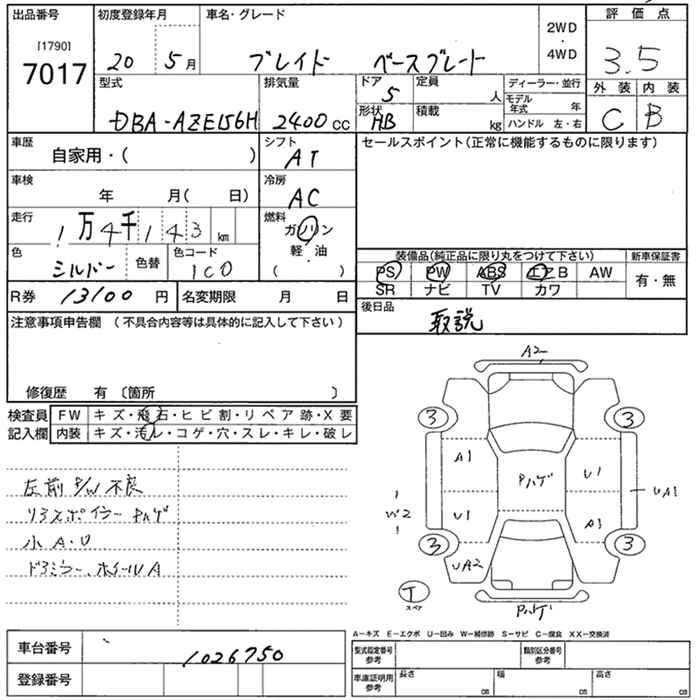 出品番号 初度登録年月 車名・グレード 2WD・4WD 評価点
[1790]
7017 20 5月 ブレイド ベースグレード 3.5
型式 排気量 ドア 5 定員 人 ディーラー・並行 外装 内装
DBA-AZE156H 2400cc 形状 HB 積載 kg モデル年式 年 C B
ハンドル 左・右
車歴 自家用・( ) シフト AT セールスポイント(正常に機能するものに限ります)
車検 年 月( 日) 冷房 AC
走行 1万4千143km 燃料 ガソリン
軽・油
( )
色 シルバー 色替 色コード 1C0
装備品(純正品に限り丸をつけて下さい) 新車保証書
PS PW ABS エアB AW 有・無
SR ナビ TV カワ
R券 13100円 名変期限 月 日 後日品 取説
注意事項申告欄 (不具合内容等は具体的に記入して下さい)
修復歴 有 〔箇所 〕
検査員 FW キズ・飛石・ヒビ割・リペア跡・X要
記入欄 内装 キズ・汚レ・コゲ・穴・スレ・キレ・破レ
左前P/W不良
リアスポイラーPハゲ
小A・U
ドアミラー、ホイールA
A2
3 3
A1 Pハゲ U1
UA1
W2
U1 A1
3 3
UA2
T
スペア
Pハゲ
A-キズ E-エクボ U-凹み W-補修跡 S-サビ C-腐食 XX-交換済
車台番号 1026750
登録番号
型式指定番号 参考 類別区分番号 参考
車庫証明用 参考 長さ cm 幅 cm 高さ cm